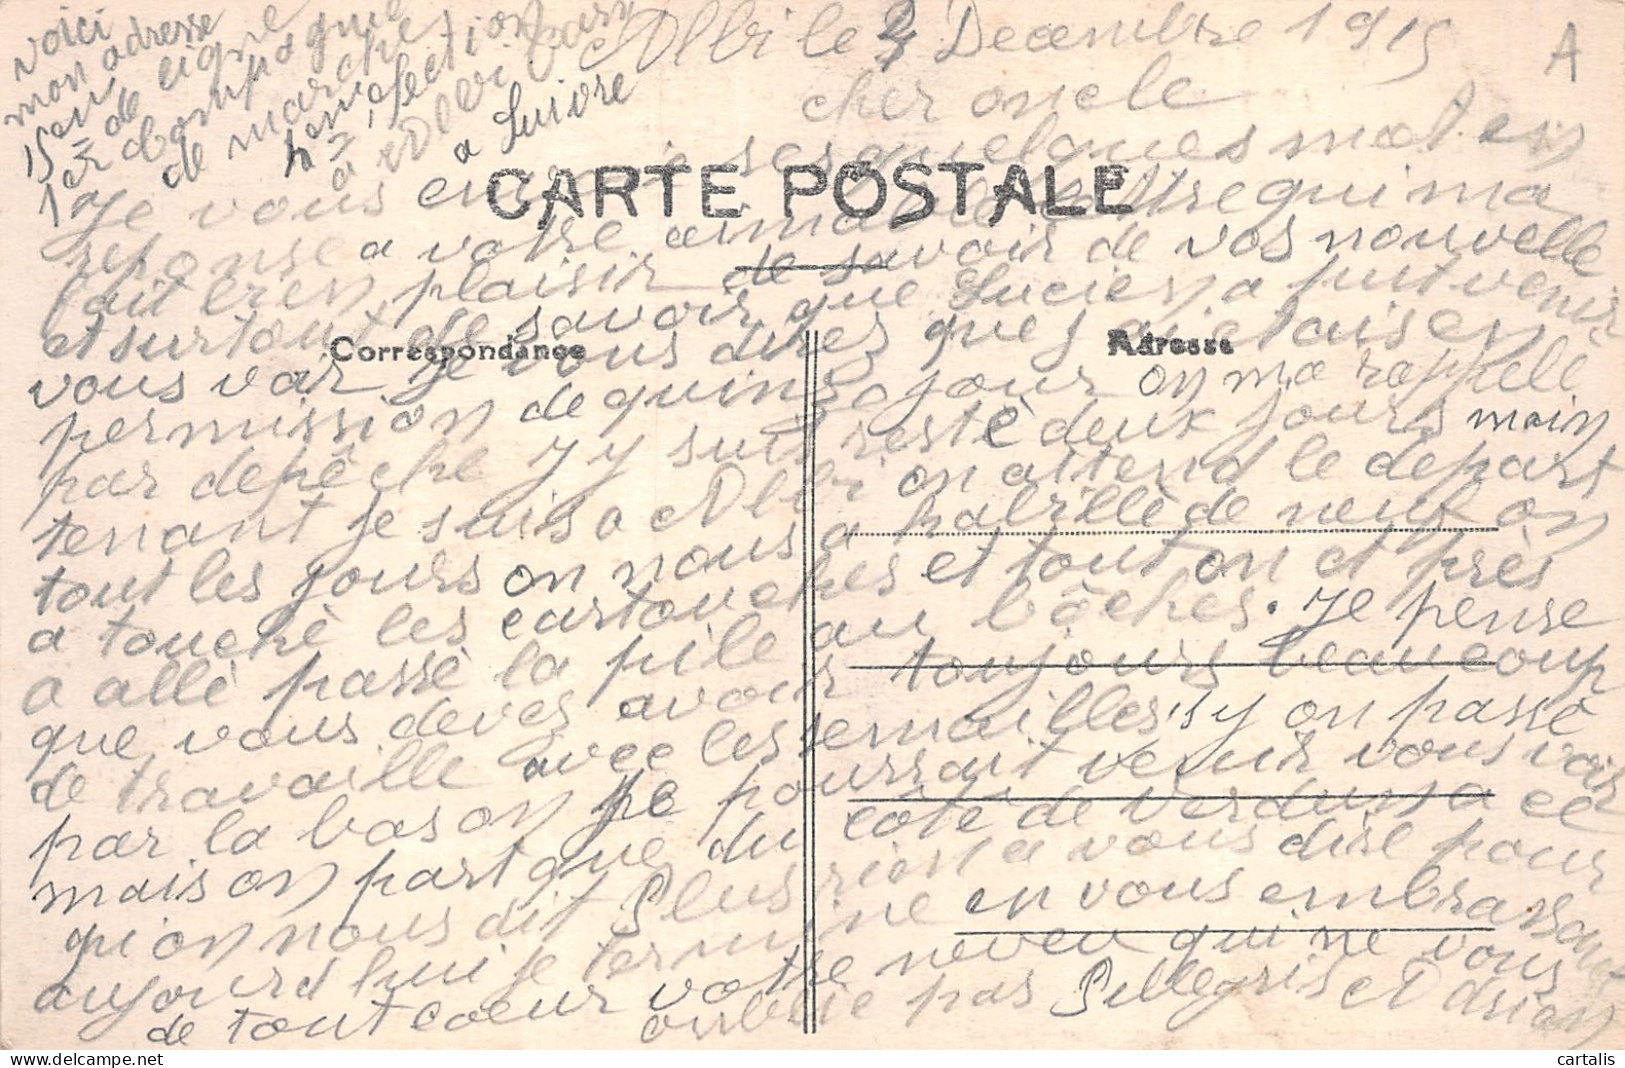 voici
mon adresse
15em de ligne
1er Compagnie
de marche
section
a Albi Tarn
a suivre
Albi le 4 Decembre 1915
A
cher oncle
Je vous envoie ses quelques mot en
reponse a votre aimable lettre qui ma
fait bien plaisir de savoir de vos nouvelle
et surtout de savoir que Lucien a put venir
vous voir Je vous dires ques j'ai etais en
permission de quinze jour on ma rappelé
par depêche J y suis resté deux jours main
tenant Je suis a Albi on attend le depart
tout les jours on nous a habillè de neuf on
a touchè les cartouches et tout on et près
a allè passè la pile au bôches. Je pense
que vous deves avoir toujours beaucoup
de travaille avec les semailles, si y on passe
par la bason Je pourrait venir vous voir
mais on part que du cote de Verdun a ce
qu'on nous dit Plus rien a vous dire pour
aujourd hui Je termine en vous embrassant
de tout coeur votre neveu qui ne vous
oublie pas Pellegris Adrian
CARTE POSTALE
Correspondance
Adresse
cartalis